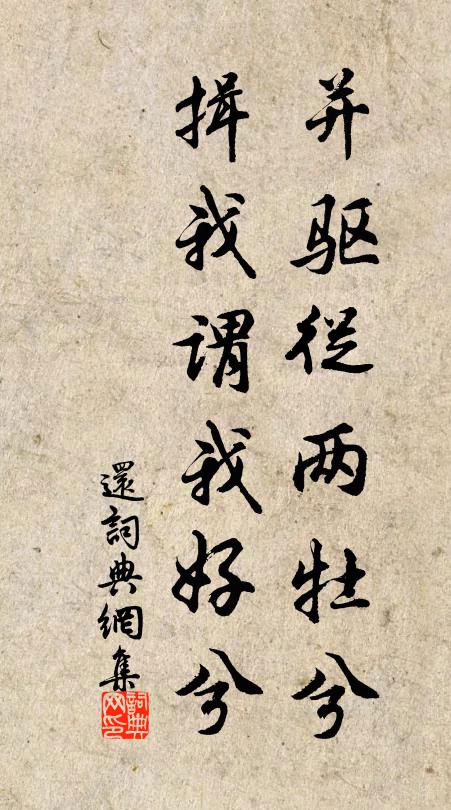 并驱從两牡兮
揖我谓我好兮
還詞典網集
詞典网印